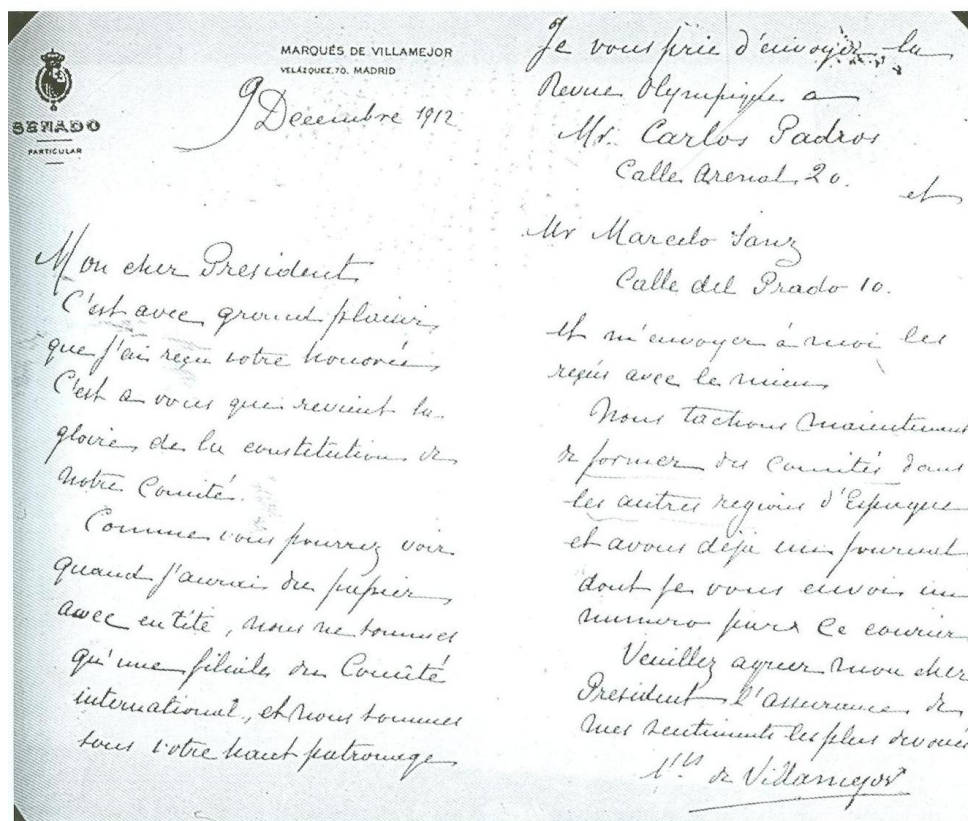 MARQUÉS DE VILLAMEJOR
VELÁZQUEZ. 70. MADRID
SENADO
PARTICULAR
9 Décembre 1912
Mon cher President
C'est avec grand plaisir
que j'ai reçu votre honorée
C'est a vous que revient la
gloire de la constitution de
notre Comité.
Comme vous pourrez voir
quand j'aurais du papier
avec entête, nous ne sommes
qu'une filiale du Comité
international, et nous sommes
sous votre haut patronage
Je vous prie d'envoyer la
Revue Olympique a
Mr. Carlos Padros
Calle Arenal 20.
et
Mr Marcelo Sanz
Calle del Prado 10.
et m'envoyer à moi les
reçus avec le mien
Nous tachons maintenant
de former des Comités dans
les autres regions d'Espagne
et avons déja un journal
dont je vous envois un
numero par ce courier
Veuillez agreer mon cher
President l'assurance de
mes sentiments les plus devoués
de Villamejor